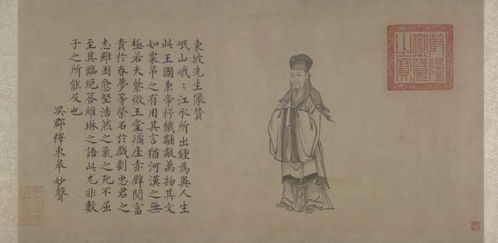 東坡先生像贊
岷山峨〻江水所出鍾為異人生
此王國秉帝杼機黼黻萬物其文
如粟帛之有用其言猶河漢之無
極若夫紫微玉堂瓊崖赤壁閱富
貴於春夢等榮名於戲劇忠君之
志雖困愈堅浩然之氣之死不屈
至其臨絕答維琳之語此尤非數
子之所能及也
吳郡釋東皋妙聲
乾隆御覽之寶